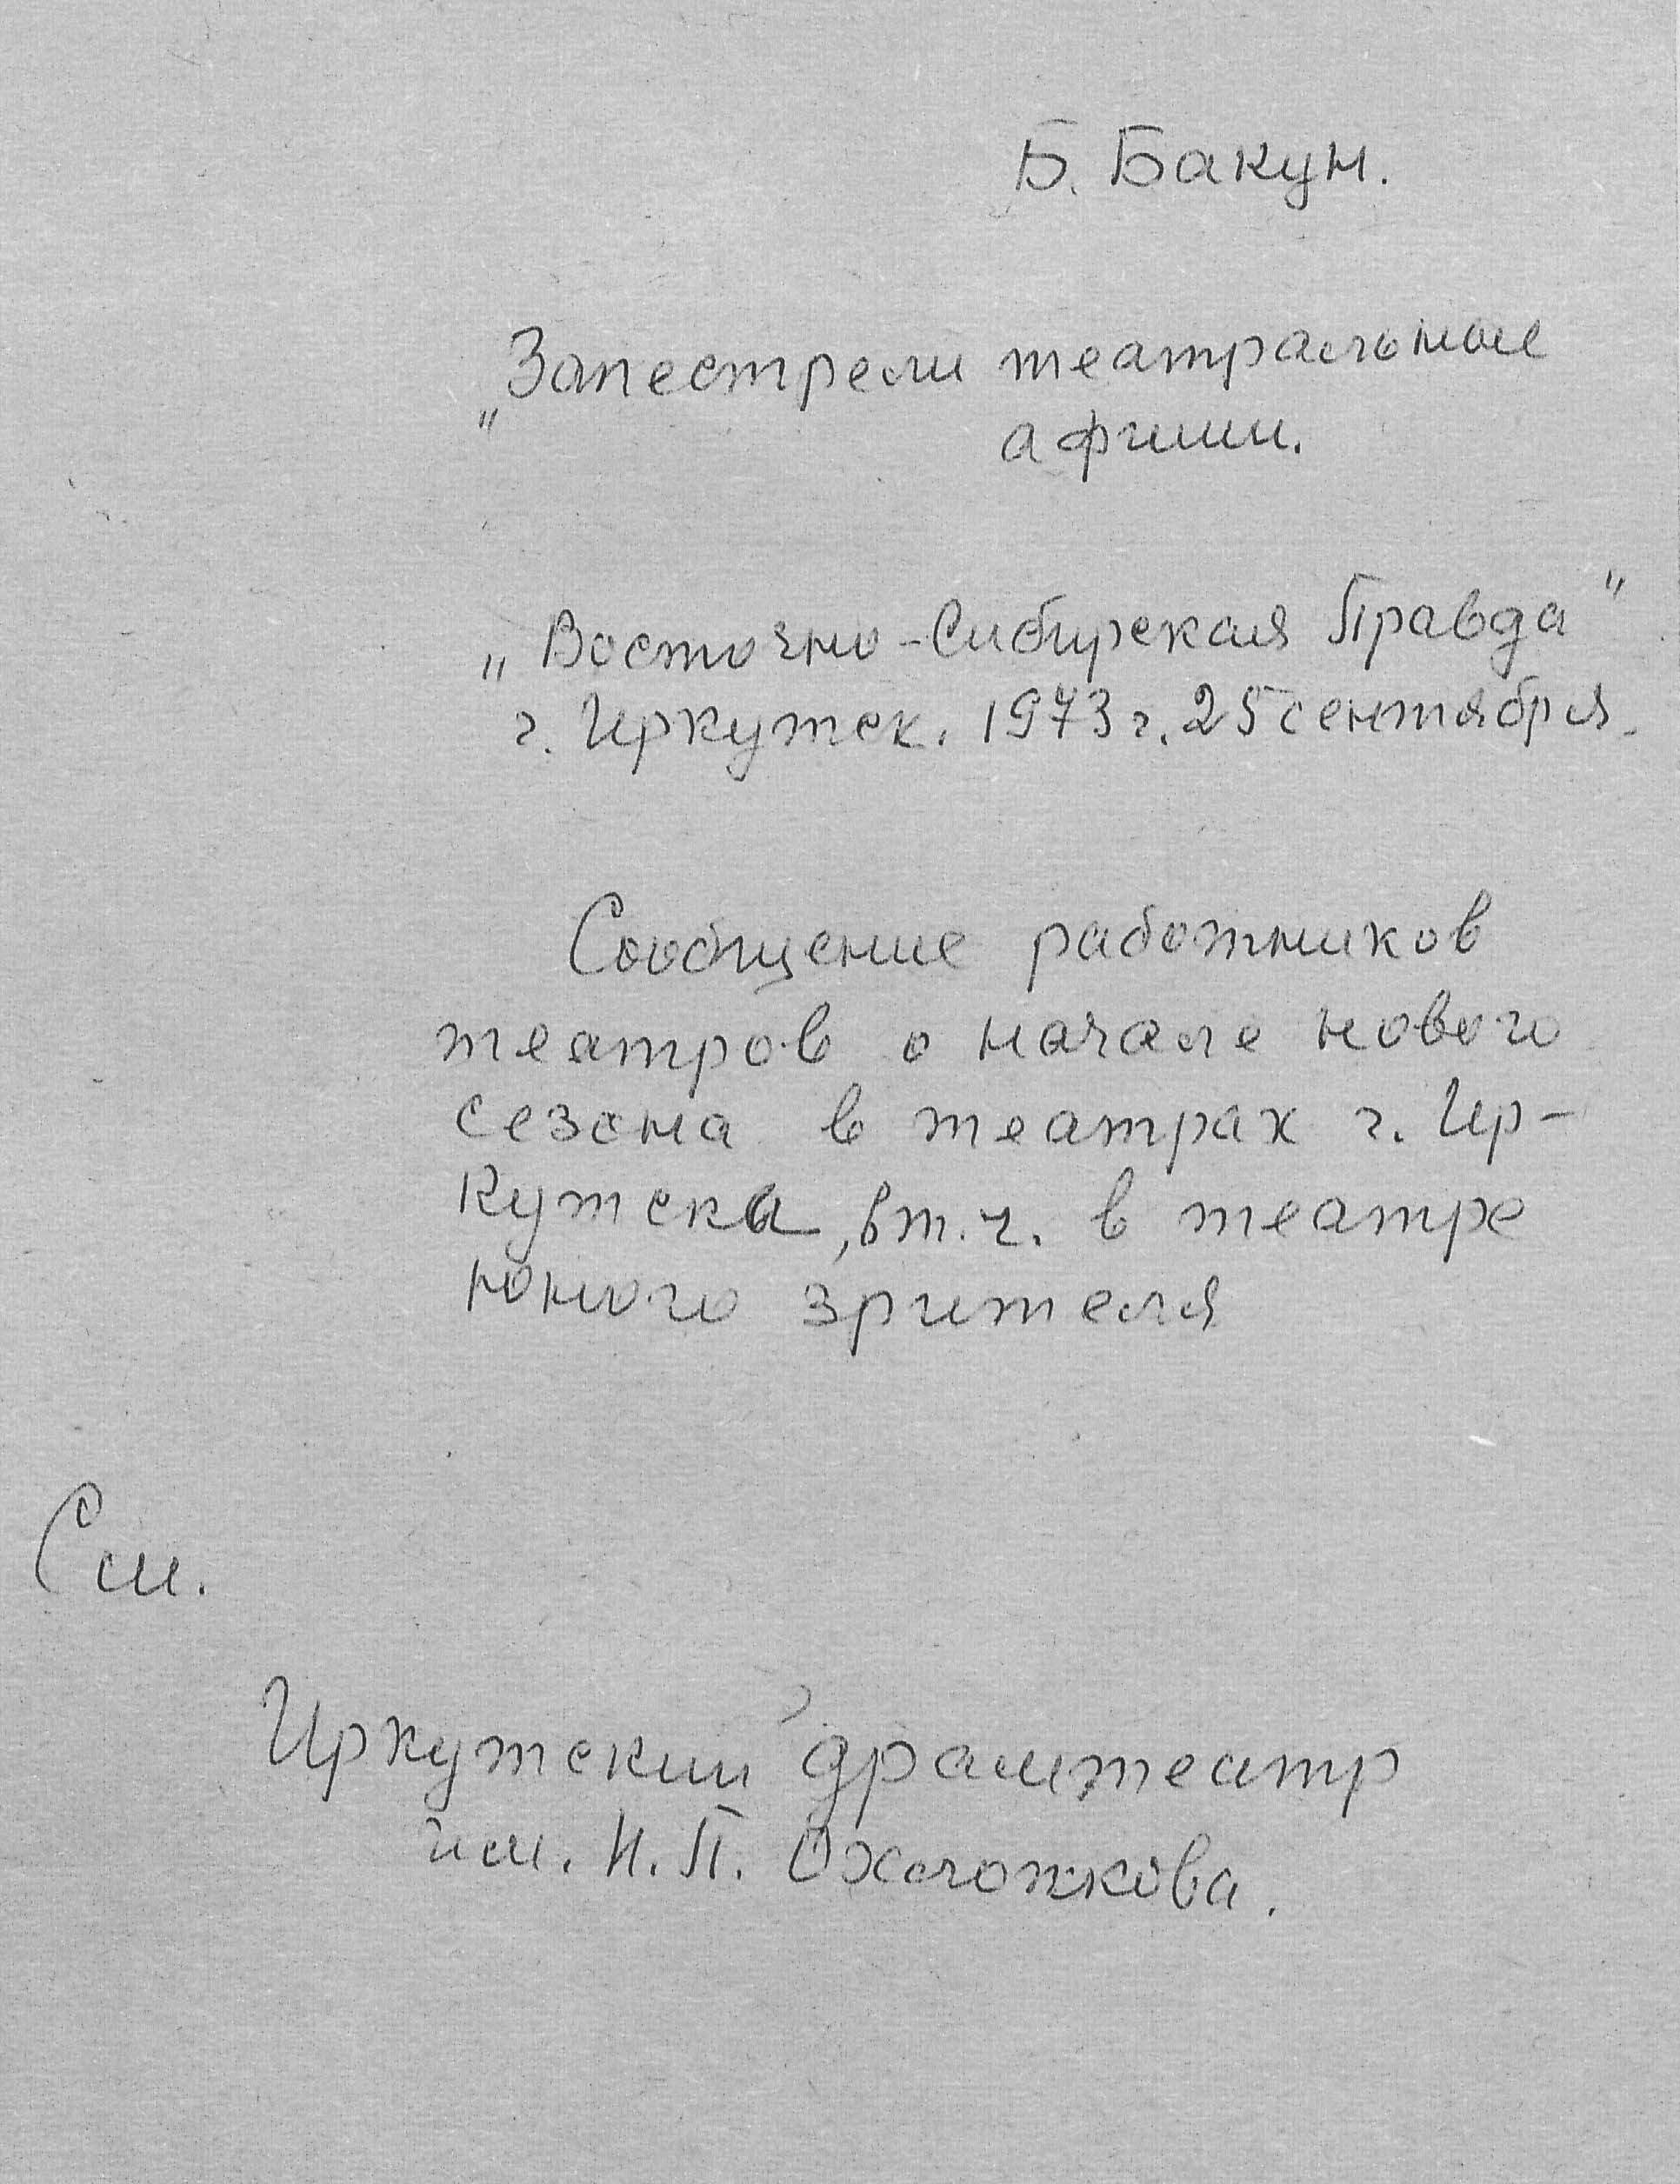 Б. Бакун.
„Запестрели театральные
афиши.
„Восточно-Сибирская Правда"
г. Иркутск. 1973 г. 25 сентября.
Сообщение работников
театров о начале нового
сезона в театрах г. Ир-
кутска, в т.ч. в театре
юного зрителя
См.
Иркутский драмтеатр
им. Н.П. Охлопкова.